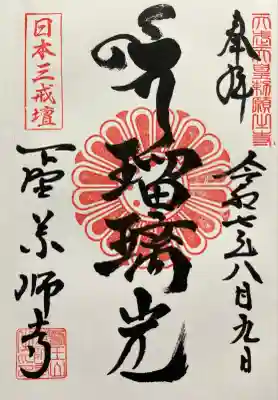 奉拝
天武天皇勅願之寺
令和七年八月九日
瑠璃光
日本三戒壇
薬師寺